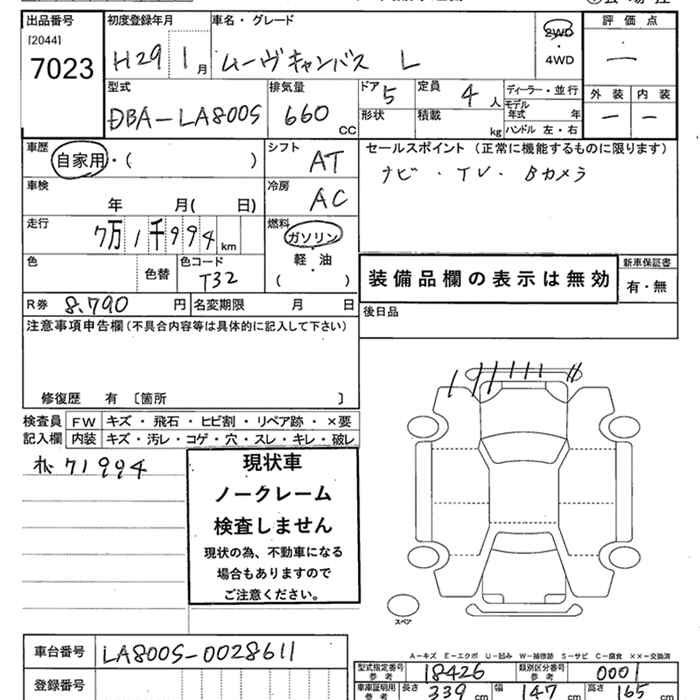 出品番号 初度登録年月 車名・グレード 評価点
[2044]
7023 H29 1月 ムーヴキャンバス L 2WD ・ 4WD —
型式 排気量 ドア 定員 ディーラー・並行 外装 内装
DBA-LA800S 660 CC 5 4人 モデル年式 年 — —
形状 積載 kg ハンドル 左・右
車歴 シフト セールスポイント(正常に機能するものに限ります)
自家用・( ) AT ナビ・TV・Bカメラ
車検 冷房
年 月( 日) AC
走行 燃料
7万1千994km ガソリン
色 色替 色コード 軽・油 装備品欄の表示は無効 新車保証書
T32 ( ) 有・無
R券 8,790円 名変期限 月 日 後日品
注意事項申告欄(不具合内容等は具体的に記入して下さい)
修復歴 有 〔箇所 〕
検査員 FW キズ・飛石・ヒビ割・リペア跡・×要
記入欄 内装 キズ・汚レ・コゲ・穴・スレ・キレ・破レ
71994
現状車
ノークレーム
検査しません
現状の為、不動車になる
場合もありますので
ご注意ください。
スペア
A−キズ E−エクボ U−凹み W−補修跡 S−サビ C−腐食 ××−交換済
車台番号 LA800S-0028611 型式指定番号参考 18426 類別区分番号参考 0001
登録番号 車庫証明用参考 長さ 339cm 幅 147cm 高さ 165cm